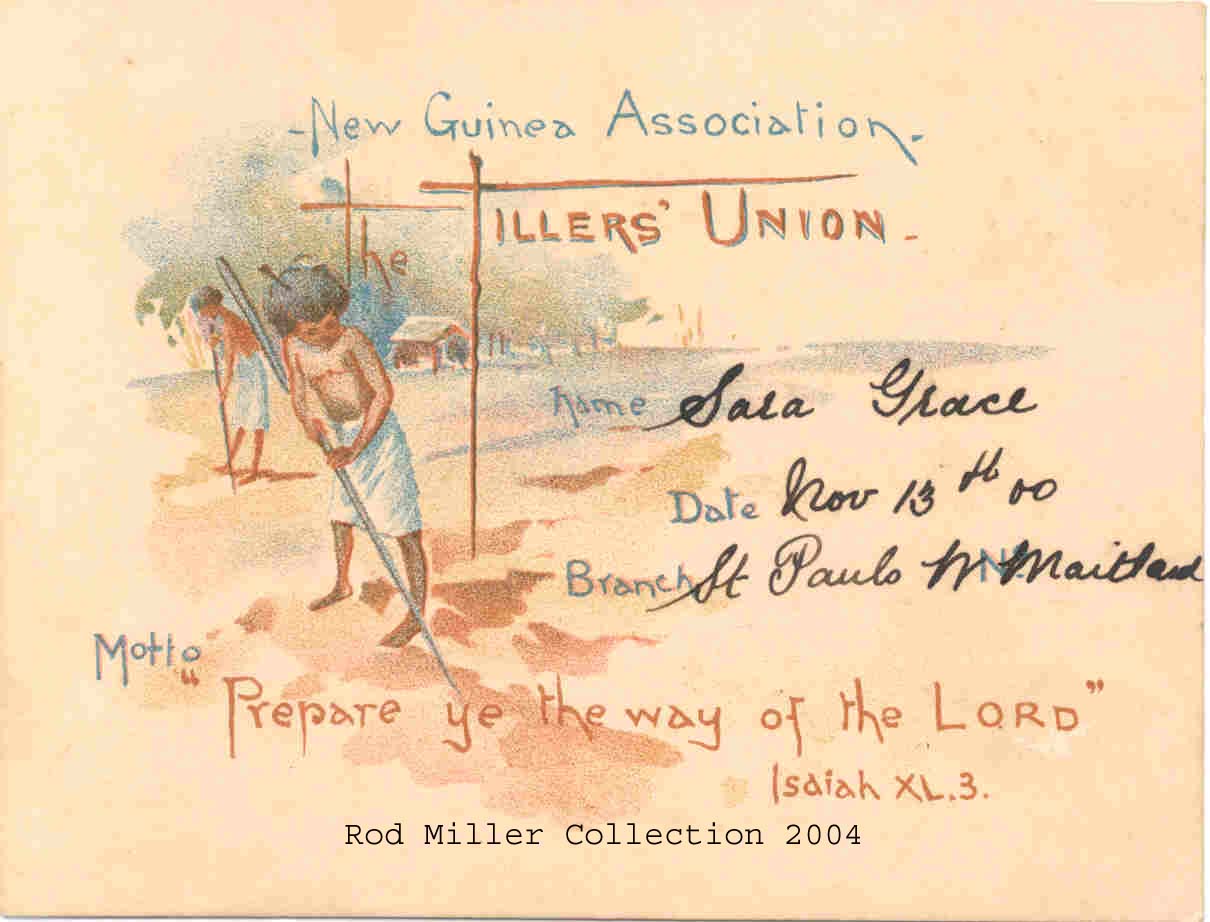 -New Guinea Association.-
The TILLERS' UNION.-
Name Sara Grace
Date Nov 13th 00
Branch St Pauls W Maitland
Motto
"Prepare ye the way of the LORD"
Isaiah XL.3.
Rod Miller Collection 2004